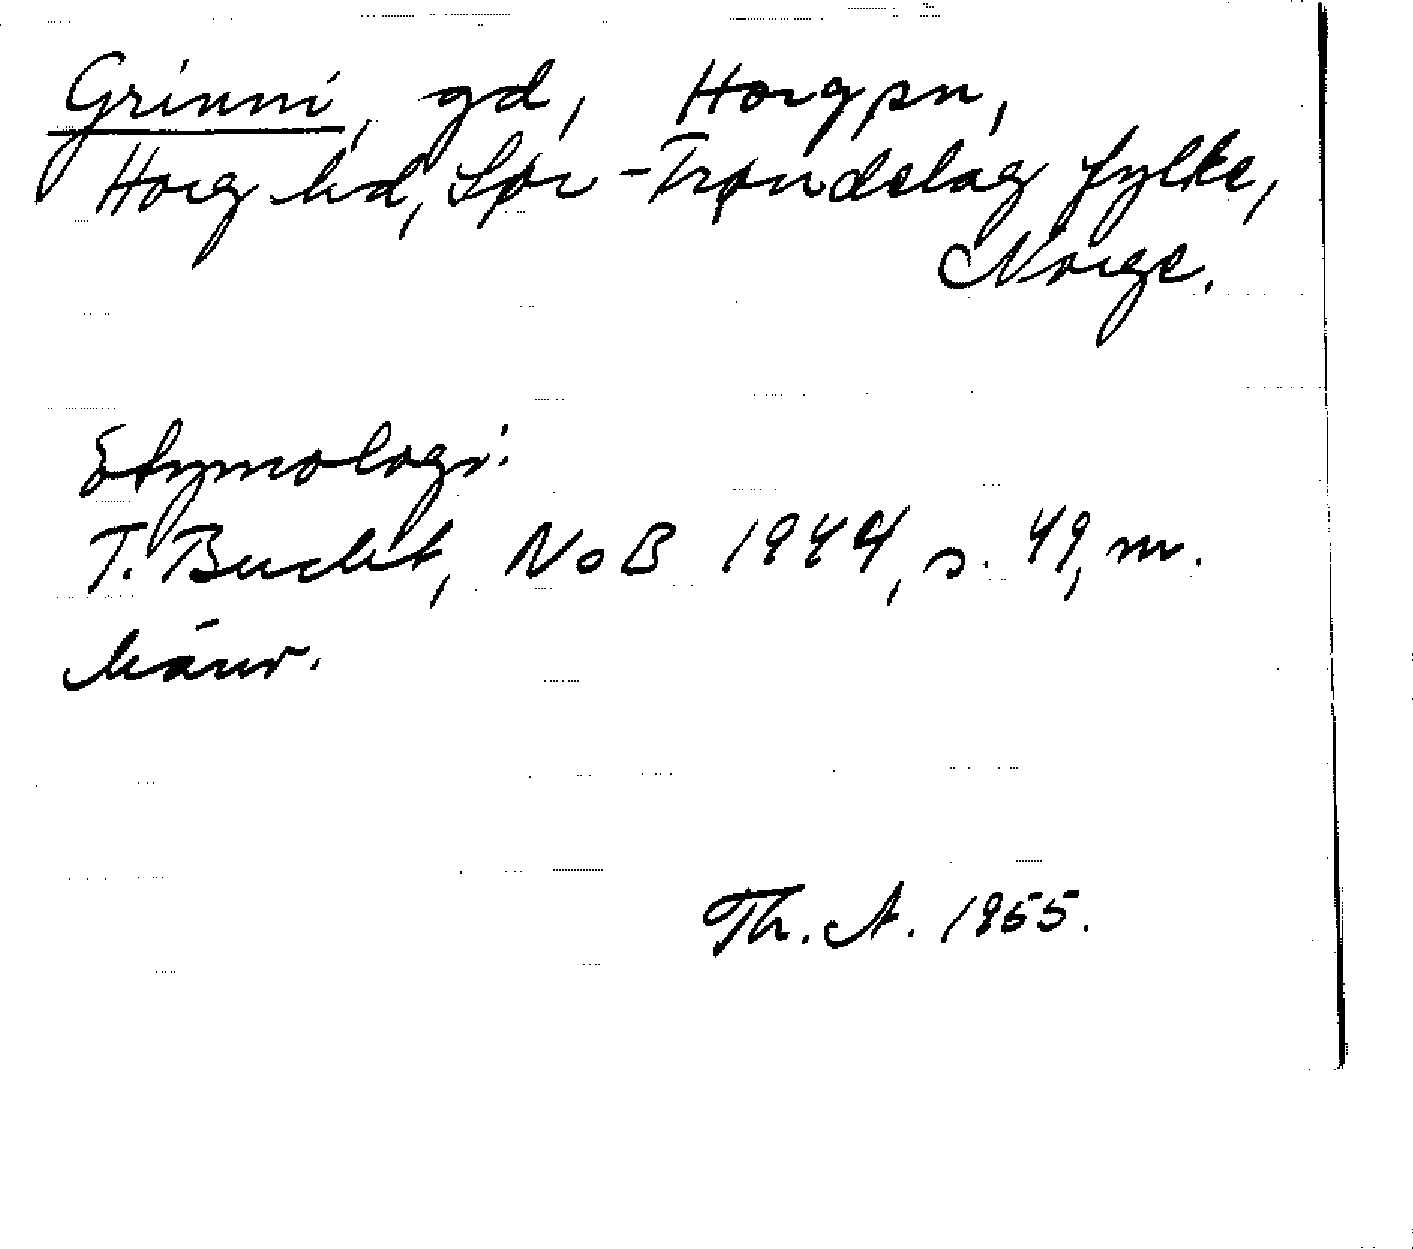 Grinni, gd, Horg sn,
Horg hd, Sør-Trøndelag fylke,
Norge.
Etymologi:
T. Bucht, NoB 1944, s. 49, m.
hänv.
Th. A. 1955.